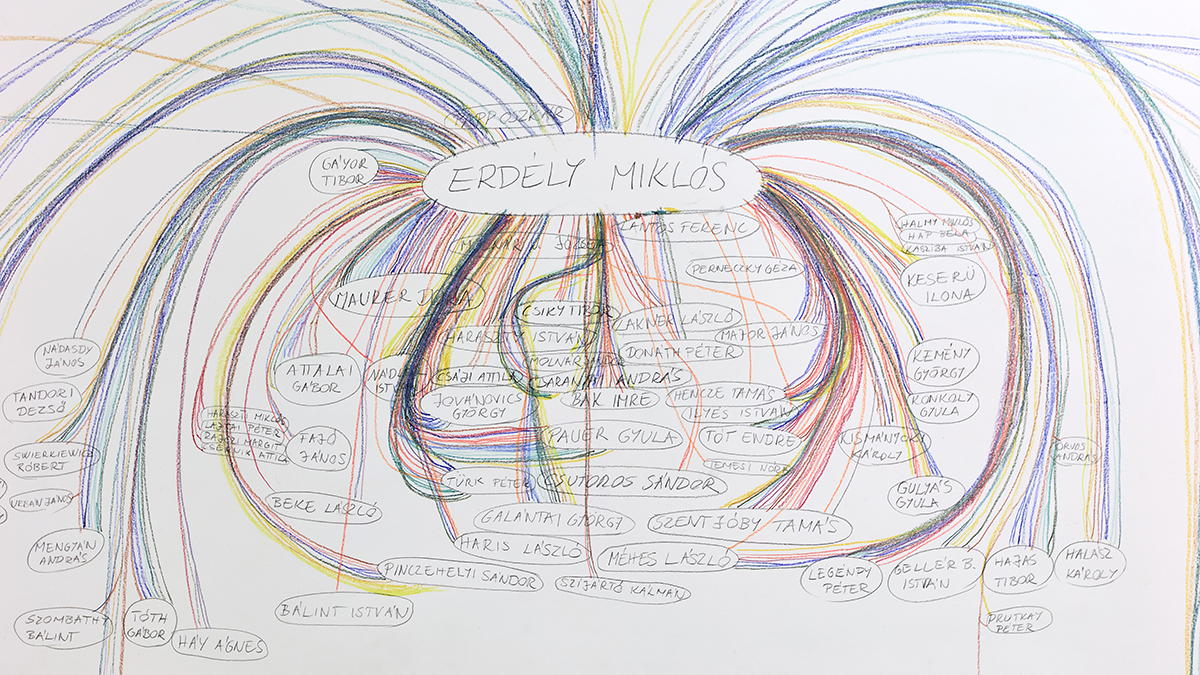 GÁYOR
TIBOR
ERDÉLY MIKLÓS
LANTOS FERENC
MOLNÁR V. JÓZSEF
HALMY MIKLÓS
HAP BÉLA
KASZIBA ISTVÁN
PERNECZKY GÉZA
KESERÜ
ILONA
MAURER DÓRA
CSIKY TIBOR
LAKNER LÁSZLÓ
MAJOR JÁNOS
HARASZTY ISTVÁN
DONÁTH PÉTER
MOLNÁR SÁNDOR
NÁDASDY
JÁNOS
KEMÉNY
GYÖRGY
ATTALAI
GÁBOR
CSÁJI ATTILA
ANDRÁS
BAK IMRE
HENCZE TAMÁS
ILYÉS ISTVÁN
TANDORI
DEZSŐ
JOVÁNOVICS
GYÖRGY
KONKOLY
GYULA
HARASZTI MIKLÓS
LAJTAI PÉTER
RAJCZI MARGIT
CERNIK ATTILA
FAJÓ
JÁNOS
PAUER GYULA
TÓT ENDRE
KISMÁNYOKY
KÁROLY
ORVOS
ANDRÁS
SWIERKIEWICZ
RÓBERT
TÜRK PÉTER
CSUTOROS SÁNDOR
URBÁN JÁNOS
BEKE LÁSZLÓ
GULYÁS
GYULA
GALÁNTAI GYÖRGY
SZENTJÓBY TAMÁS
MENGYÁN
ANDRÁS
HARIS LÁSZLÓ
MÉHES LÁSZLÓ
PINCZEHELYI SÁNDOR
SZIJÁRTÓ KÁLMÁN
LEGÉNDY
PÉTER
GELLÉR B.
ISTVÁN
HAJAS
TIBOR
HALÁSZ
KÁROLY
BÁLINT ISTVÁN
SZOMBATHY
BÁLINT
TÓTH
GÁBOR
HÁY ÁGNES
PRUTKAY
PÉTER